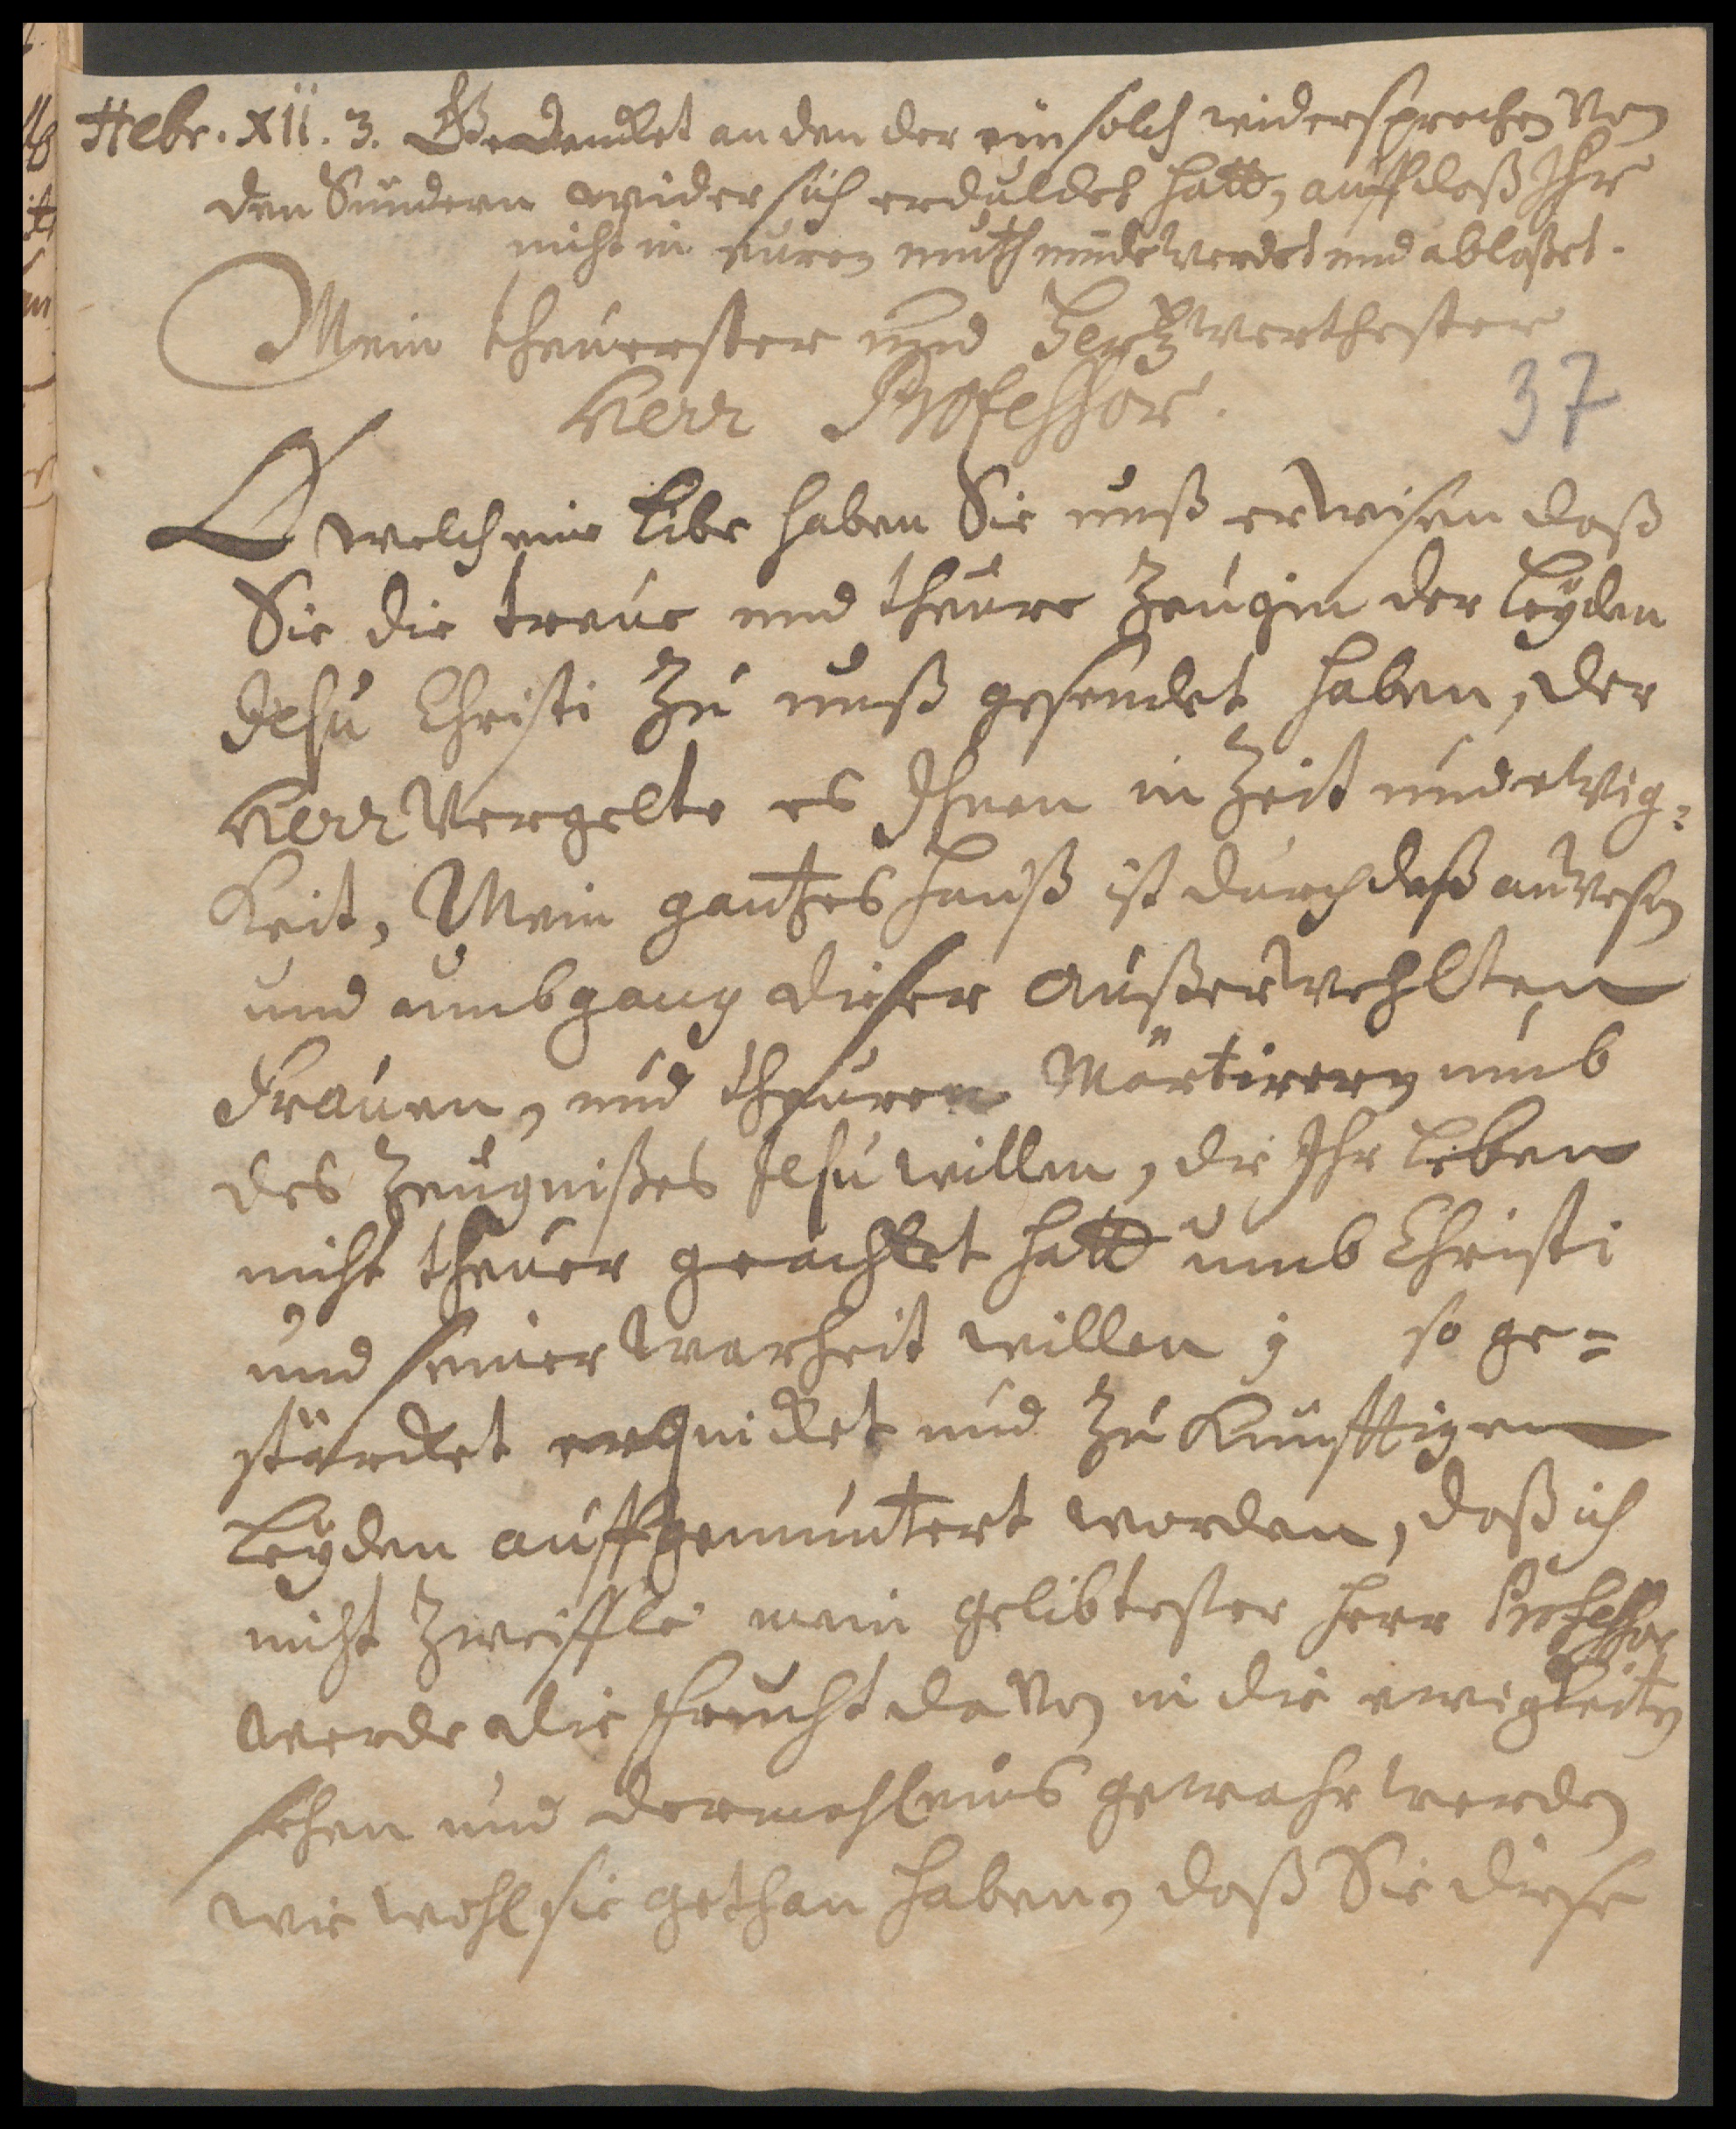 Hebr. XII. 3. Gedencket an den der ein solch widersprechen Von
den Sündern wider sich erduldet hatt, auff daß Ihr
nicht in euren muth müde werdet und ablaßet.
Mein theuerster und Hertzwerthester
Herr Professor.
37
O welch eine Libe haben Sie unß erwisen daß
Sie die treue und theure Zeugin der Leyden
Jesu Christi zu unß gesendet haben, der
Herr Vergelte es Ihnen in Zeit und ewig-
keit, Mein gantzes Hauß ist durch daß anwesen
und umbgang dieser außerwehlten
Frauen, und theuren Märtirern umb
des Zeugnißes Jesu willen, die Ihr Leben
nicht theuer geachtet hatt umb Christi
und seiner warheit willen; so ge=
stärcket erquicket und zu künfftigen
Leyden auffgemuntert worden, daß ich
nicht Zweiffle mein gelibtester Herr Professor
werde die frucht davon in die ewigkeiten
sehen und dermahleins gewahr werden
wie wohl sie gethan haben, daß Sie diese